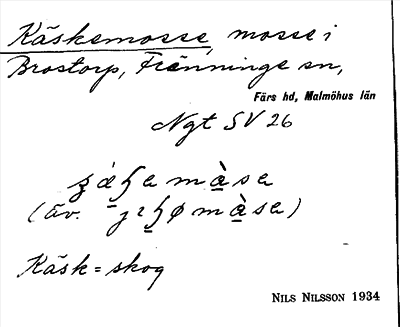 Käskemosse, mosse i
Brostorp, Fränninge sn,
Färs hd, Malmöhus län
Ngt SV 26
(äv.
Käsk = skog
NILS NILSSON 1934